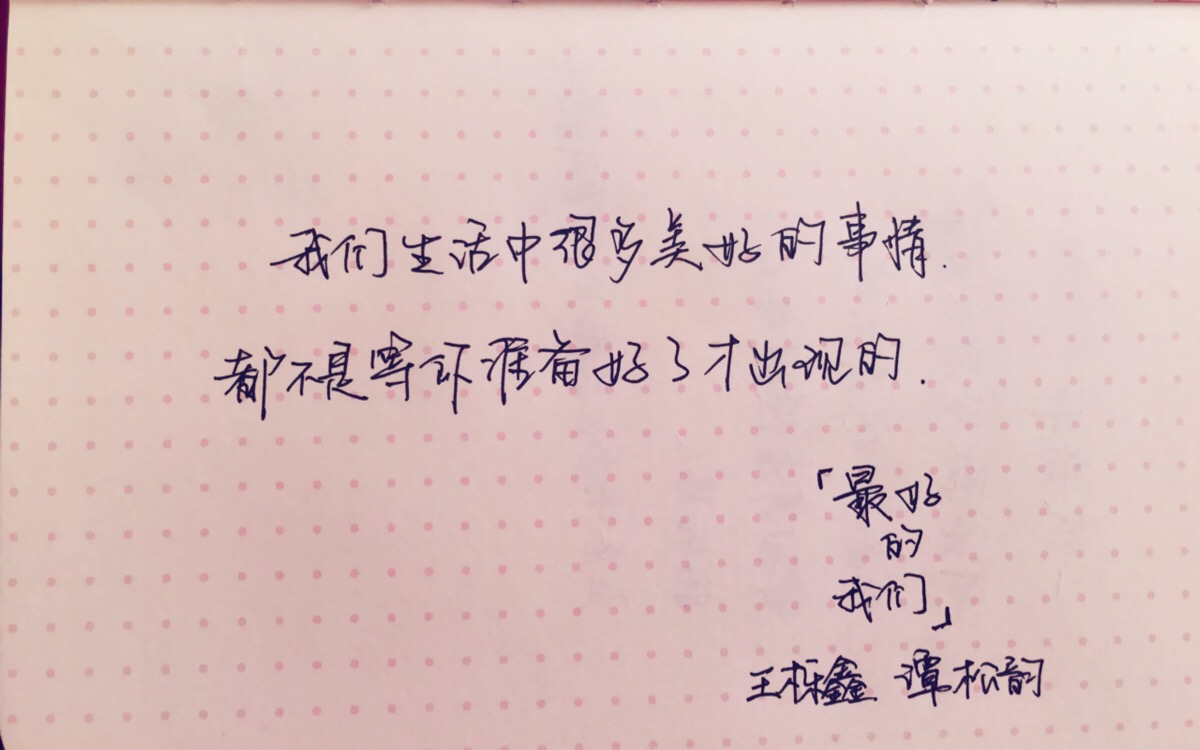 我们生活中很多美好的事情.
都不是等你准备好了才出现的.
「最好
的
我们」
王栎鑫 谭松韵